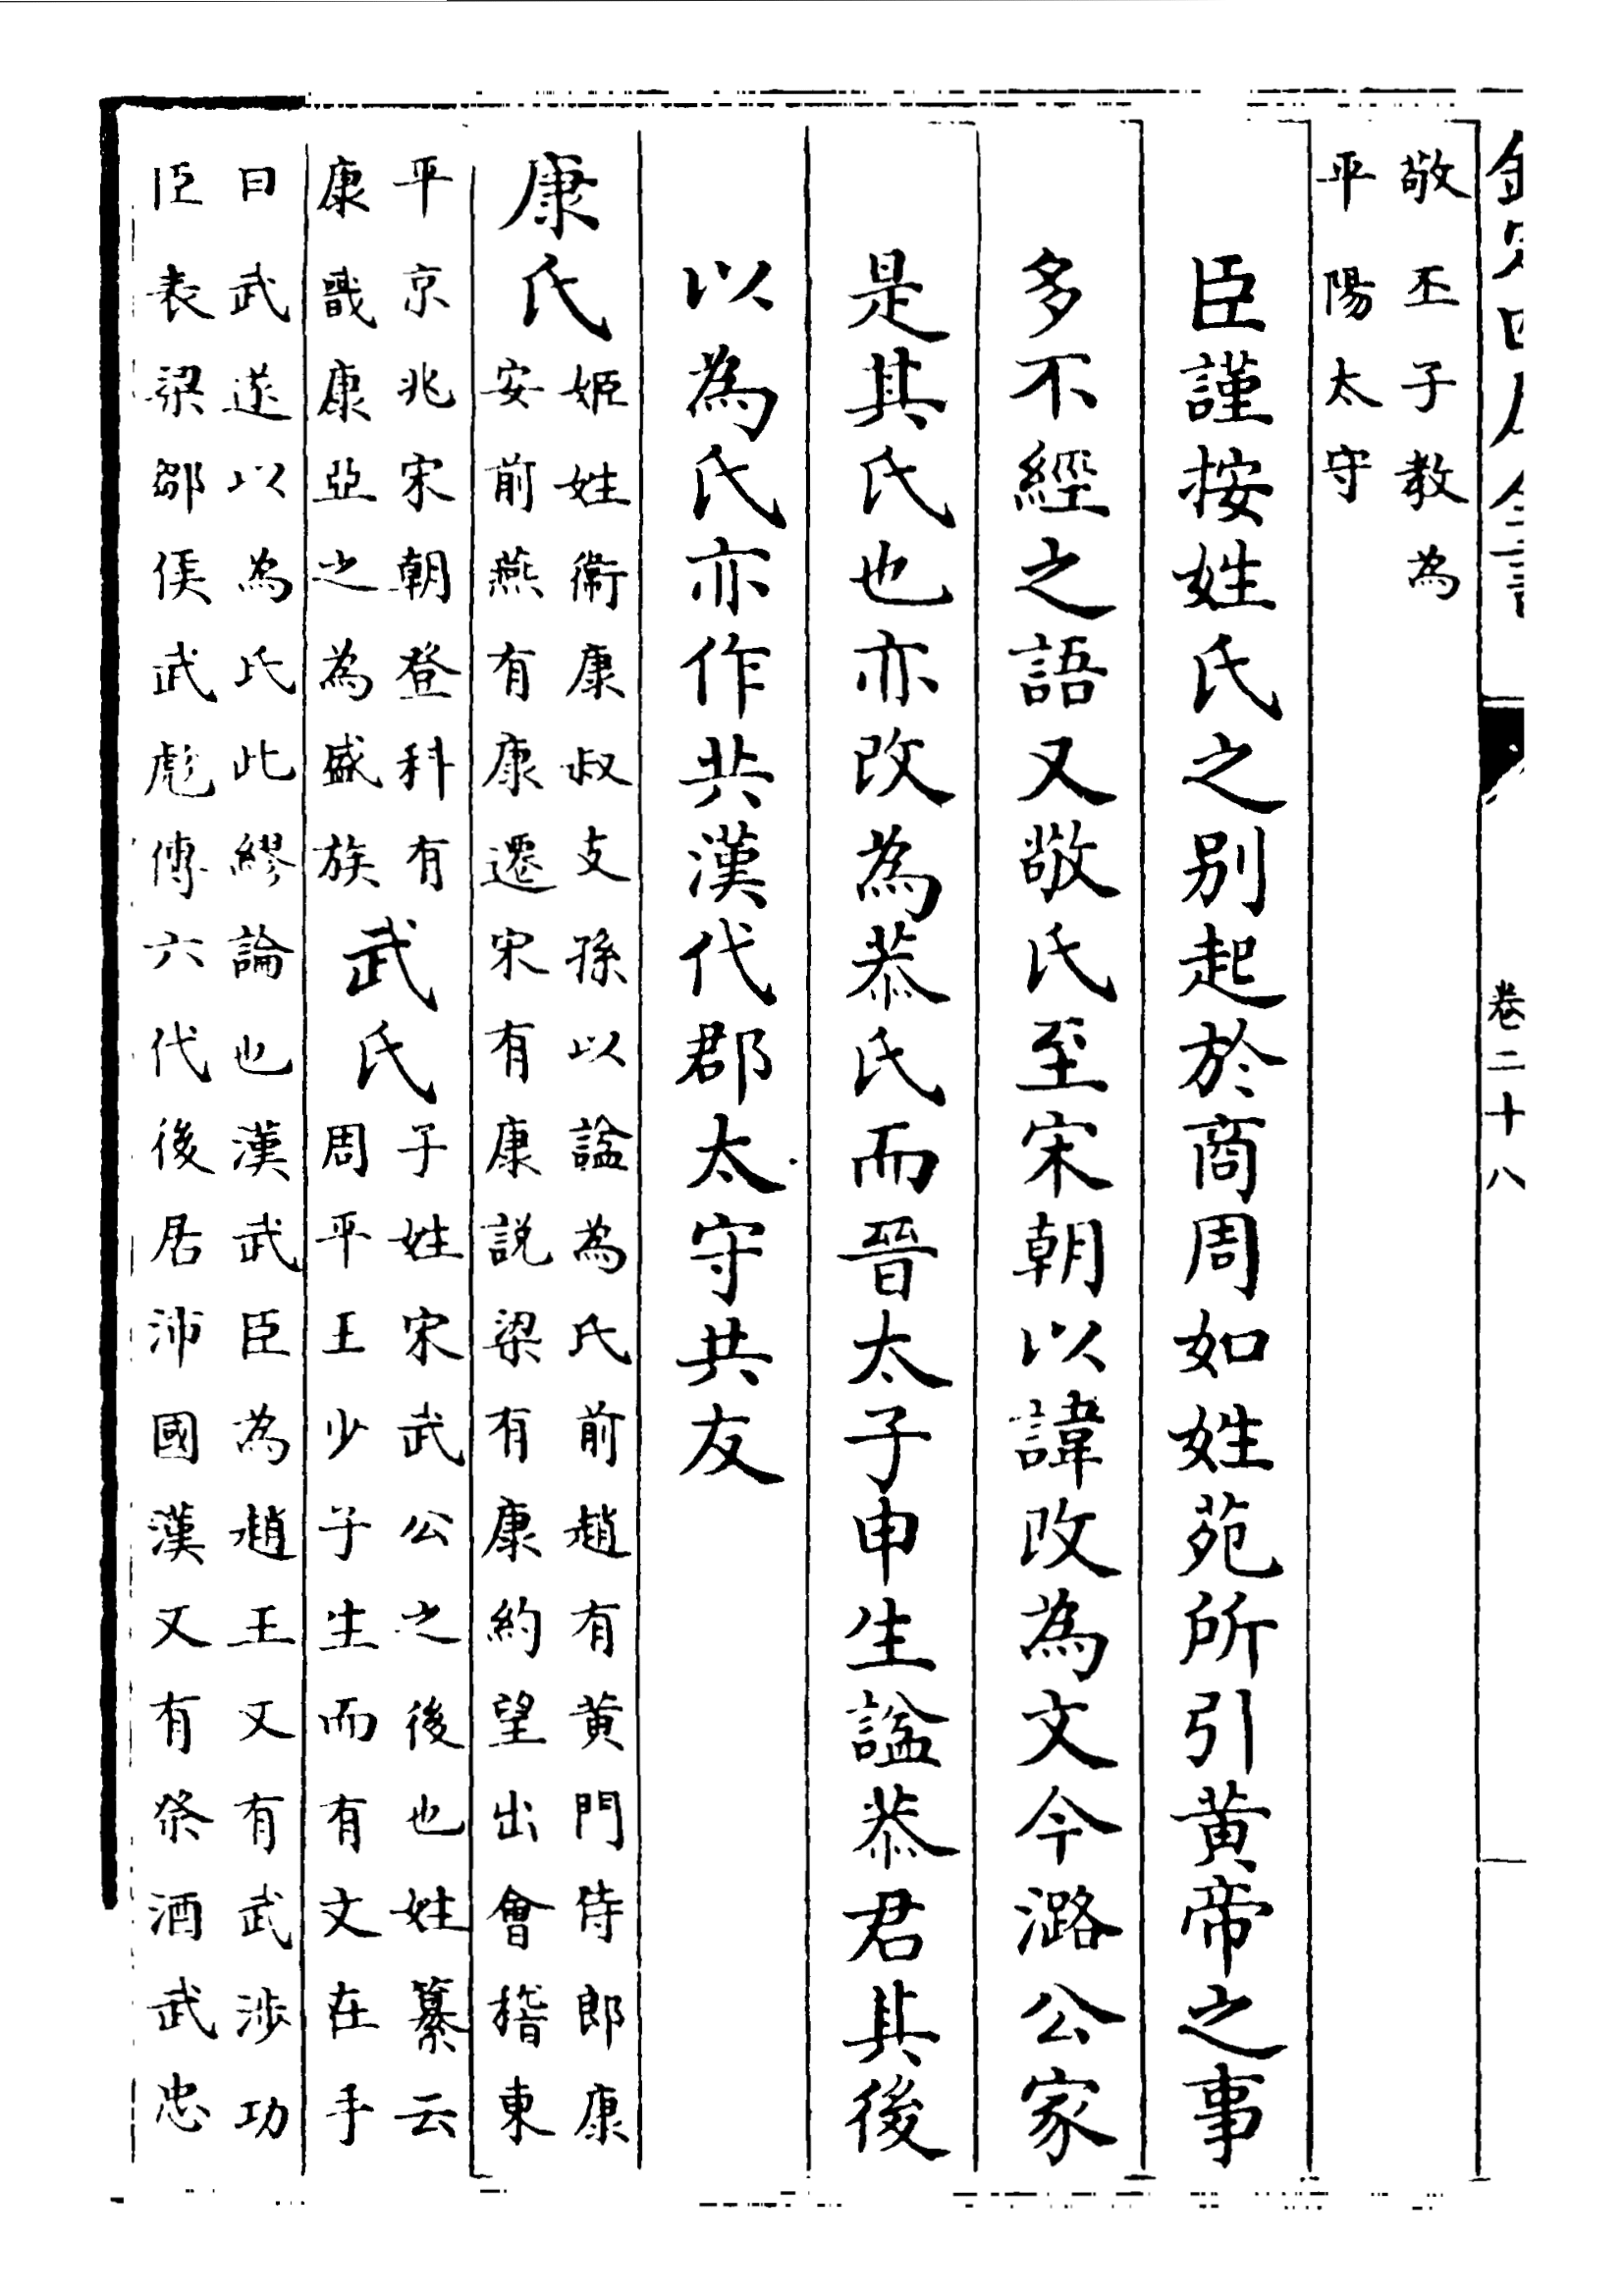 欽定四庫全書
卷二十八
敬丕子教為
平陽太守
臣謹按姓氏之别起於商周如姓苑所引黄帝之事
多不經之語又敬氏至宋朝以諱改為文今潞公家
是其氏也亦改為恭氏而晉太子申生諡恭君其後
以為氏亦作共漢代郡太守共友
康氏
姬姓衞康叔支孫以諡為氏前趙有黄門侍郎康
安前燕有康遷宋有康説梁有康約望出會稽東
平京兆宋朝登科有
康戩康亞之為盛族
武氏
子姓宋武公之後也姓纂云
周平王少子生而有文在手
曰武遂以為氏此繆論也漢武臣為趙王又有武涉功
臣表梁鄒侯武彪傳六代後居沛國漢又有祭酒武忠